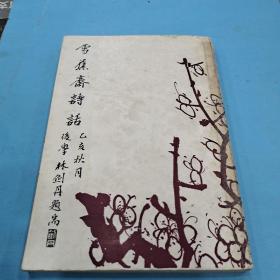 雪蕉齋詩話
乙亥秋月
後學林劍丹題耑